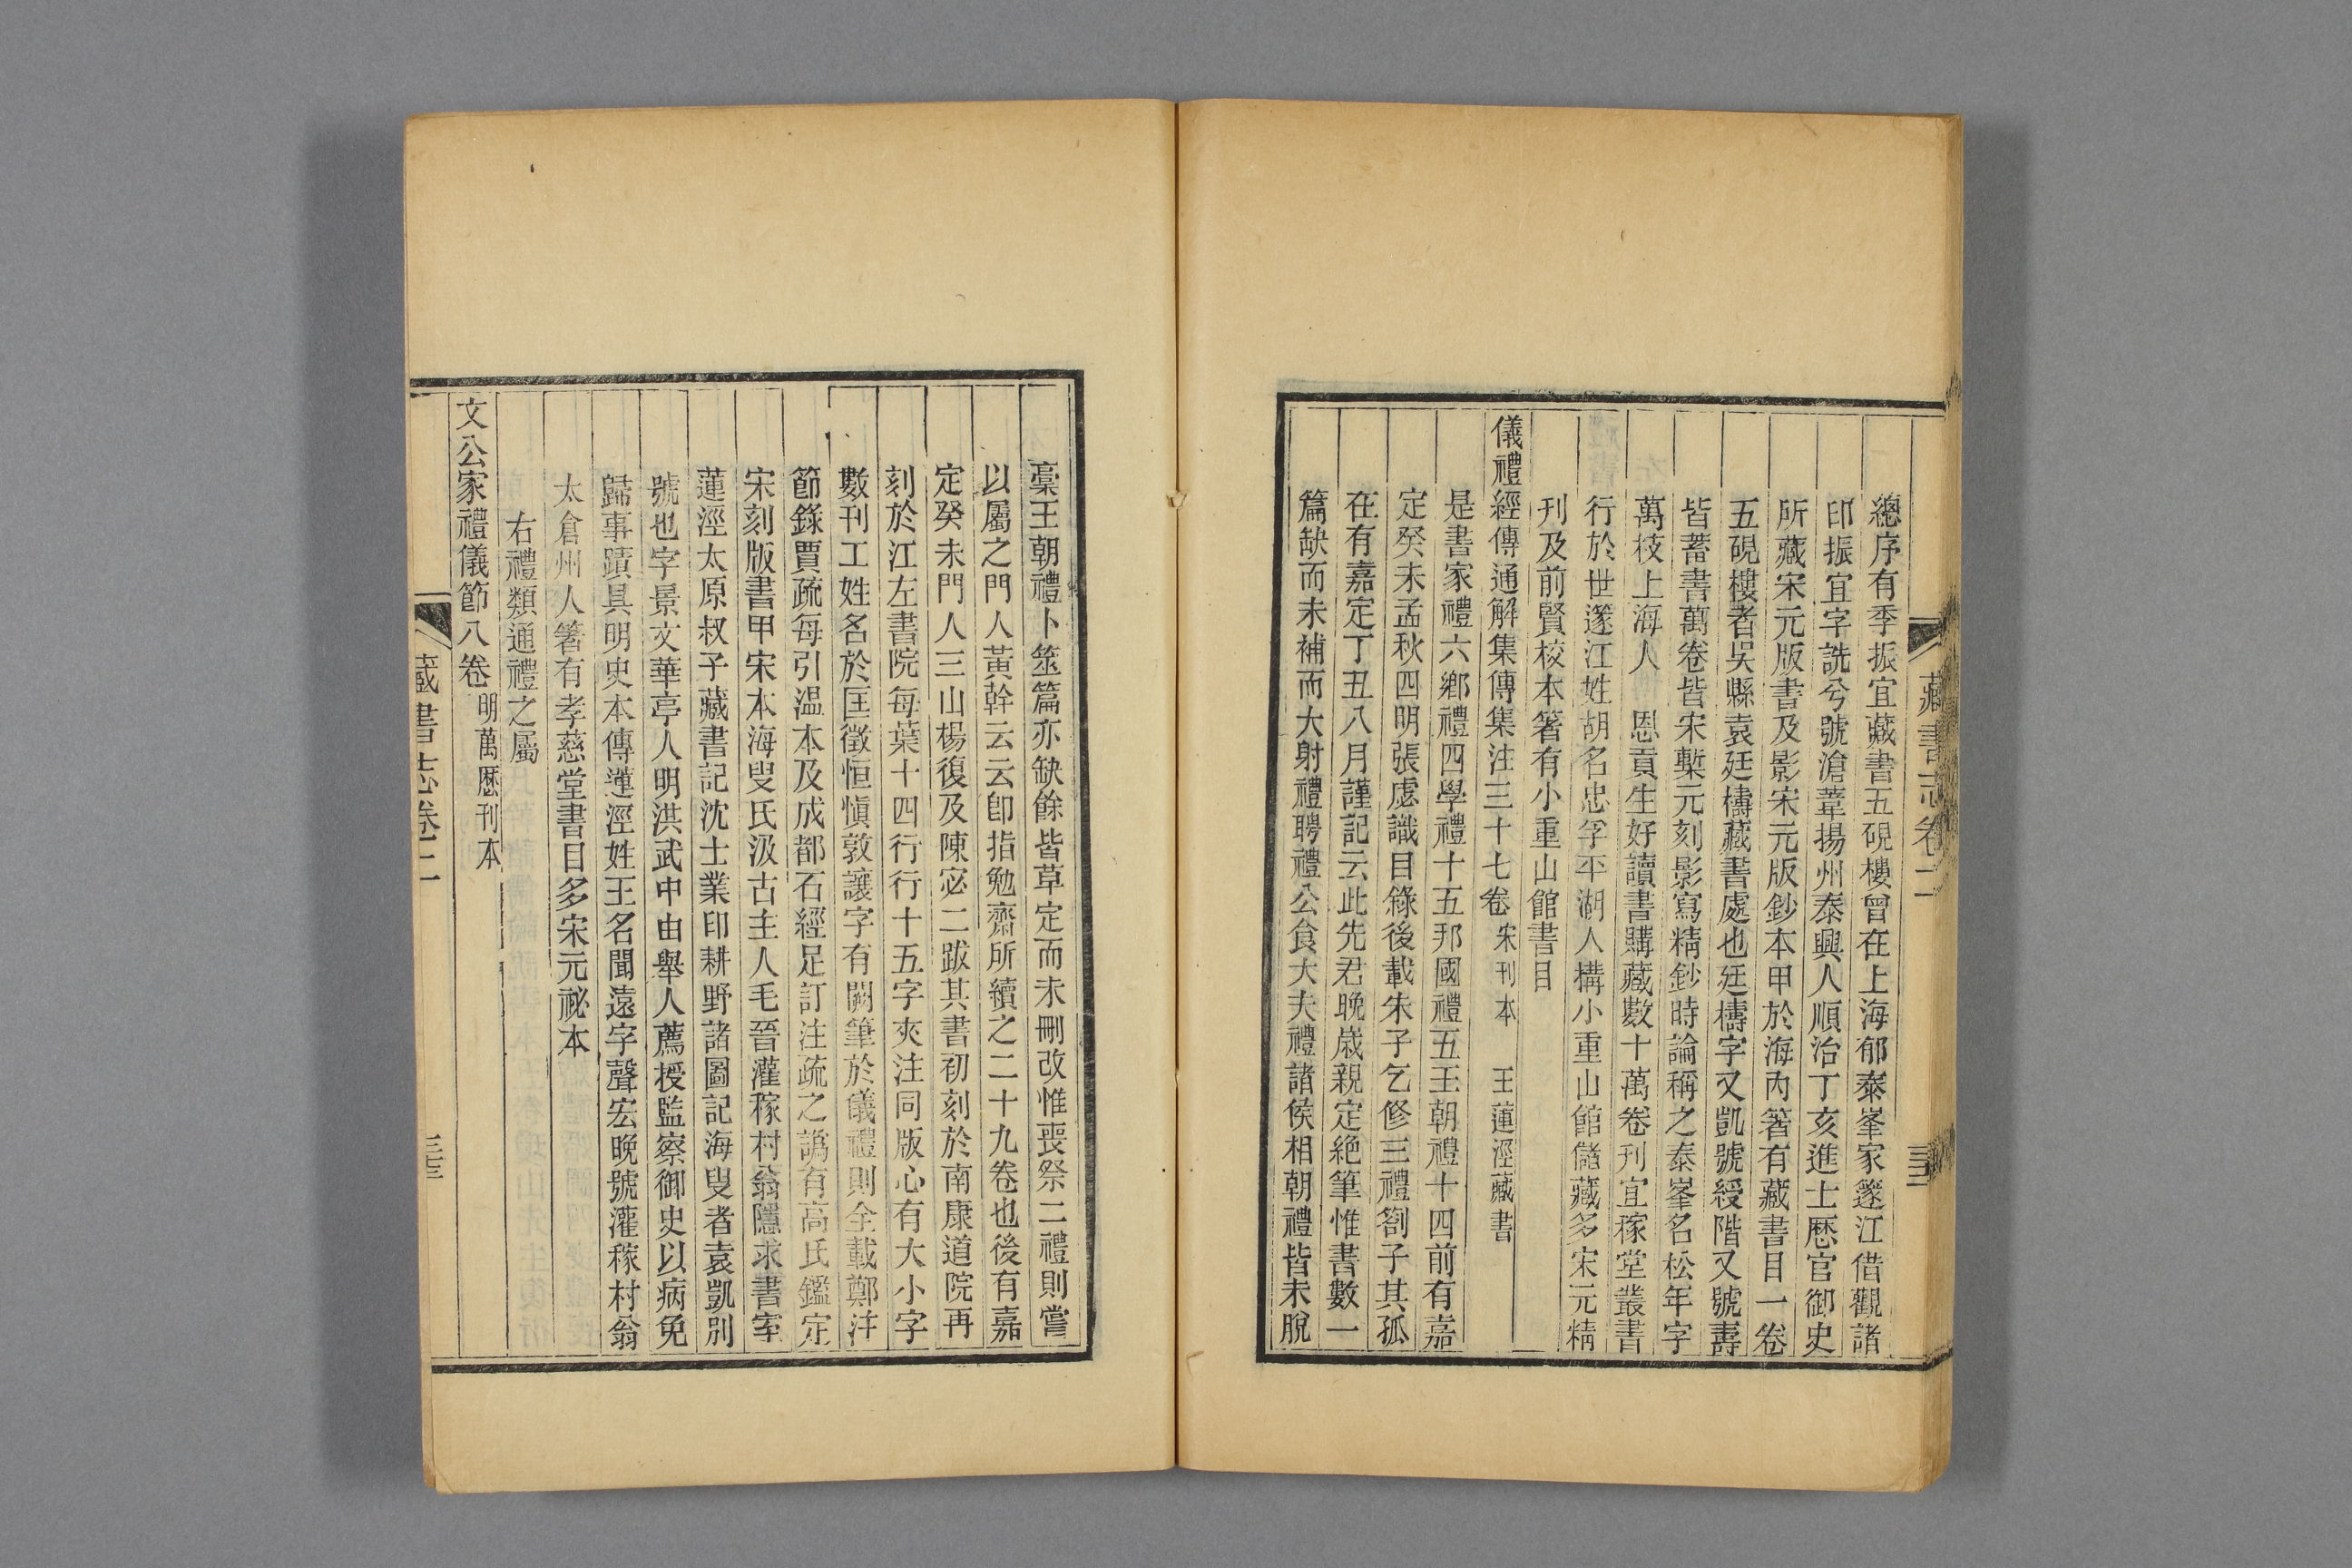 藏書志卷二
總序有季振宜藏書五硯樓曾在上海郁泰峯家邃江借觀諸
印振宜字詵兮號滄葦揚州泰興人順治丁亥進士歷官御史
所藏宋元版書及影宋元版鈔本甲於海內箸有藏書目一卷
五硯樓者吳縣袁廷檮藏書處也廷檮字又凱號綬階又號壽
皆蓄書萬卷皆宋槧元刻影寫精鈔時論稱之泰峯名松年字
萬枝上海人 恩貢生好讀書購藏數十萬卷刊宜稼堂叢書
行於世邃江姓胡名忠孚平湖人構小重山館儲藏多宋元精
刊及前賢校本箸有小重山館書目
儀禮經傳通解集傳集注三十七卷 宋刊本 王蓮涇藏書
是書家禮六鄉禮四學禮十五邦國禮五王朝禮十四前有嘉
定癸未孟秋四明張虙識目錄後載朱子乞修三禮劄子其孤
在有嘉定丁丑八月謹記云此先君晚歲親定絕筆惟書數一
篇缺而未補而大射禮聘禮公食大夫禮諸侯相朝禮皆未脫
稾王朝禮卜筮篇亦缺餘皆草定而未刪改惟喪祭二禮則嘗
以屬之門人黃幹云云卽指勉齋所續之二十九卷也後有嘉
定癸未門人三山楊復及陳宓二跋其書初刻於南康道院再
刻於江左書院每葉十四行行十五字夾注同版心有大小字
數刊工姓名於匡徵恒愼敦讓字有闕筆於儀禮則全載鄭注
節錄賈疏每引溫本及成都石經足訂注疏之譌有高氏鑑定
宋刻版書甲宋本海叟氏汲古主人毛晉灌稼村翁隱求書室
蓮涇太原叔子藏書記沈士業印耕野諸圖記海叟者袁凱別
號也字景文華亭人明洪武中由舉人薦授監察御史以病免
歸事蹟具明史本傳蓮涇姓王名聞遠字聲宏晚號灌稼村翁
太倉州人箸有孝慈堂書目多宋元祕本
右禮類通禮之屬
文公家禮儀節八卷 明萬歷刊本
藏書志卷二